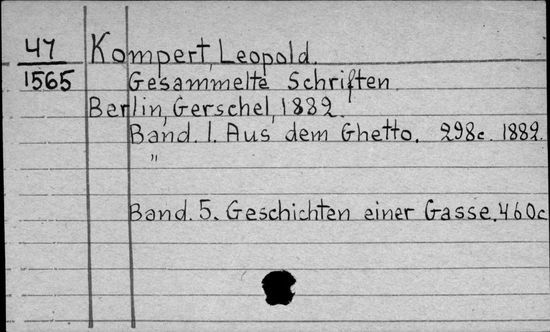 47 Kompert, Leopold.
1565 Gesammelte Schriften.
Berlin, Gerschel, 1882.
Band. 1. Aus dem Ghetto. 298c. 1882.
"
Band. 5. Geschichten einer Gasse. 460c